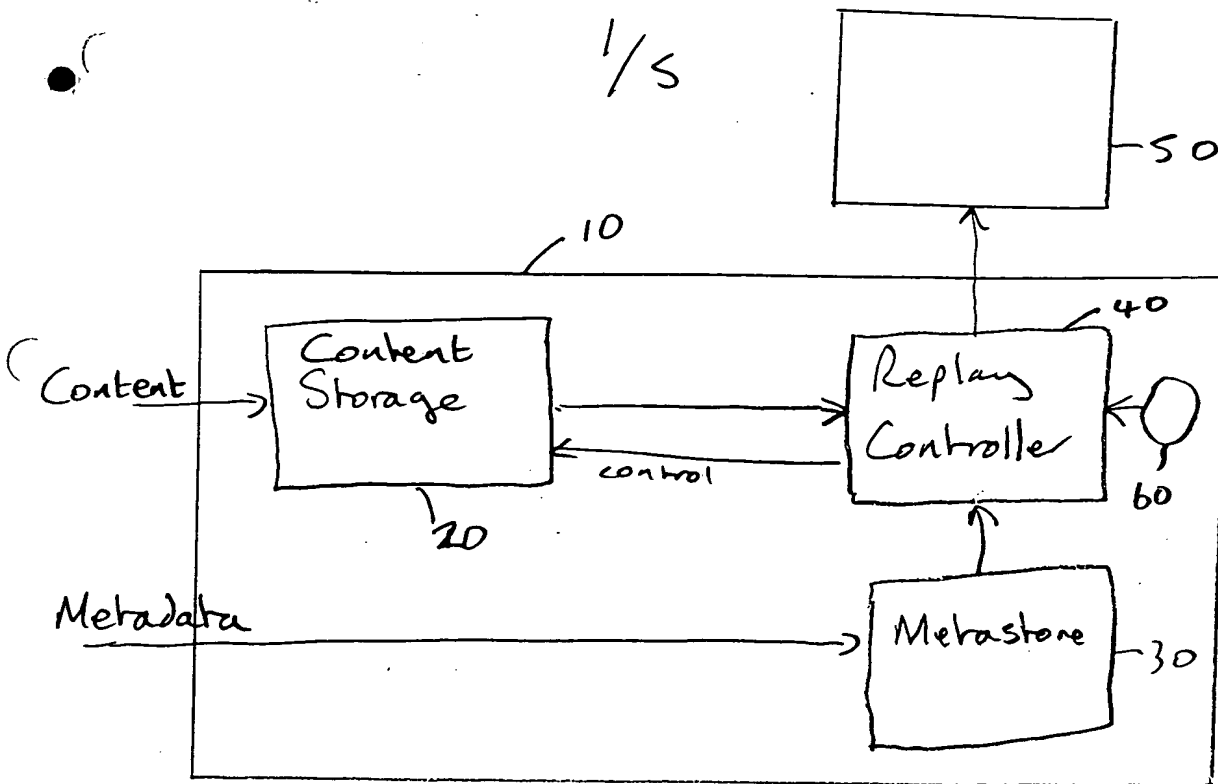 1/5
50
10
40
Content
Content
Storage
Replay
Controller
control
60
20
Metadata
Metastore
30